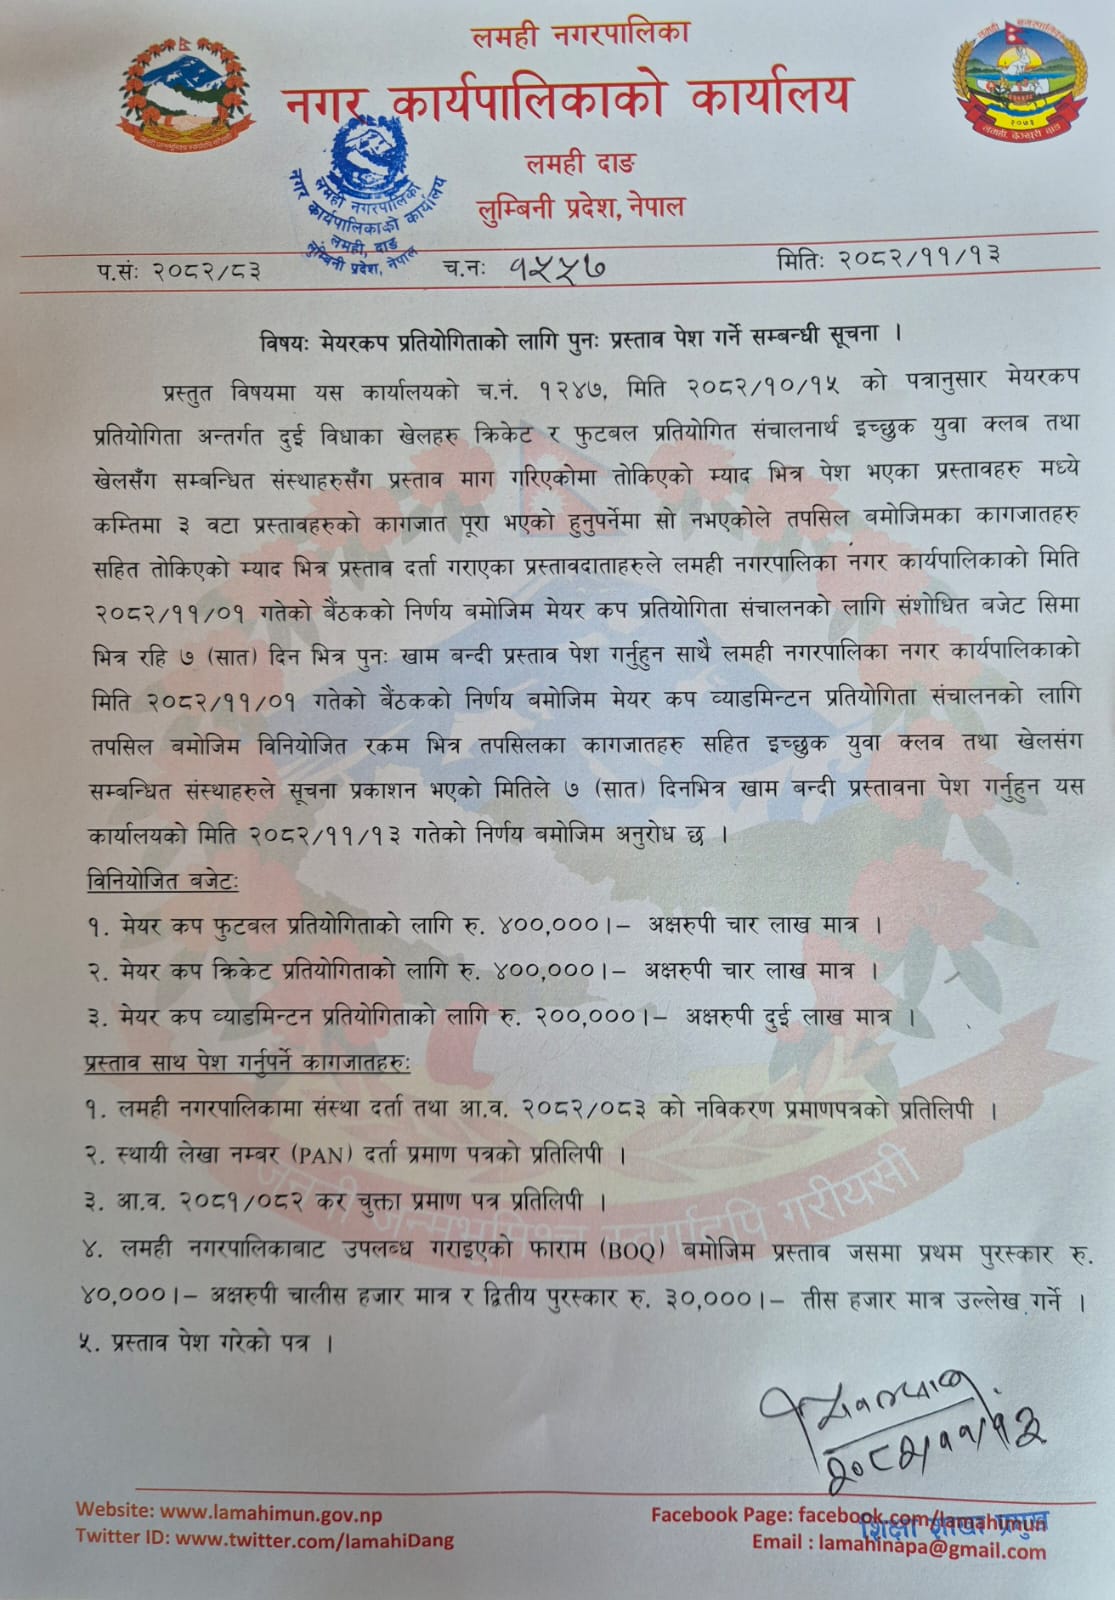 लमही नगरपालिका
नगर कार्यपालिकाको कार्यालय
लमही दाङ
लुम्बिनी प्रदेश, नेपाल
लमही नगरपालिका
नगर कार्यपालिकाको कार्यालय
लमही, दाङ
लुम्बिनी प्रदेश, नेपाल
प.सं: २०८२/८३ च.न: १५५७ मिति: २०८२/११/१३
विषय: मेयरकप प्रतियोगिताको लागि पुन: प्रस्ताव पेश गर्ने सम्बन्धी सूचना ।
प्रस्तुत विषयमा यस कार्यालयको च.नं. १२४७, मिति २०८२/१०/१५ को पत्रानुसार मेयरकप
प्रतियोगिता अन्तर्गत दुई विधाका खेलहरु क्रिकेट र फुटबल प्रतियोगित संचालनार्थ इच्छुक युवा क्लब तथा
खेलसँग सम्बन्धित संस्थाहरुसँग प्रस्ताव माग गरिएकोमा तोकिएको म्याद भित्र पेश भएका प्रस्तावहरु मध्ये
कम्तिमा ३ वटा प्रस्तावहरुको कागजात पूरा भएको हुनुपर्नेमा सो नभएकोले तपसिल बमोजिमका कागजातहरु
सहित तोकिएको म्याद भित्र प्रस्ताव दर्ता गराएका प्रस्तावदाताहरुले लमही नगरपालिका नगर कार्यपालिकाको मिति
२०८२/११/०१ गतेको बैठकको निर्णय बमोजिम मेयर कप प्रतियोगिता संचालनको लागि संशोधित बजेट सिमा
भित्र रहि ७ (सात) दिन भित्र पुन: खाम बन्दी प्रस्ताव पेश गर्नुहुन साथै लमही नगरपालिका नगर कार्यपालिकाको
मिति २०८२/११/०१ गतेको बैंठकको निर्णय बमोजिम मेयर कप व्याडमिन्टन प्रतियोगिता संचालनको लागि
तपसिल बमोजिम विनियोजित रकम भित्र तपसिलका कागजातहरु सहित इच्छुक युवा क्लव तथा खेलसंग
सम्बन्धित संस्थाहरुले सूचना प्रकाशन भएको मितिले ७ (सात) दिनभित्र खाम बन्दी प्रस्तावना पेश गर्नुहुन यस
कार्यालयको मिति २०८२/११/१३ गतेको निर्णय बमोजिम अनुरोध छ ।
विनियोजित बजेट:
१. मेयर कप फुटवल प्रतियोगिताको लागि रु. ४००,०००।– अक्षरुपी चार लाख मात्र ।
२. मेयर कप क्रिकेट प्रतियोगिताको लागि रु. ४००,०००।– अक्षरुपी चार लाख मात्र ।
३. मेयर कप व्याडमिन्टन प्रतियोगिताको लागि रु. २००,०००।– अक्षरुपी दुई लाख मात्र ।
प्रस्ताव साथ पेश गर्नुपर्ने कागजातहरु:
१. लमही नगरपालिकामा संस्था दर्ता तथा आ.व. २०८२/०८३ को नविकरण प्रमाणपत्रको प्रतिलिपी ।
२. स्थायी लेखा नम्बर (PAN) दर्ता प्रमाण पत्रको प्रतिलिपी ।
३. आ.व. २०८१/०८२ कर चुक्ता प्रमाण पत्र प्रतिलिपी ।
४. लमही नगरपालिकाबाट उपलब्ध गराइएको फाराम (BOQ) बमोजिम प्रस्ताव जसमा प्रथम पुरस्कार रु.
४०,०००।– अक्षरुपी चालीस हजार मात्र र द्वितीय पुरस्कार रु. ३०,०००।– तीस हजार मात्र उल्लेख गर्ने ।
५. प्रस्ताव पेश गरेको पत्र ।
जननी जन्मभूमिश्च स्वर्गादपि गरीयसी
२०८२/११/१३
शिक्षा शाखा प्रमुख
Website: www.lamahimun.gov.np Facebook Page: facebook.com/lamahimun
Twitter ID: www.twitter.com/lamahiDang Email : lamahinapa@gmail.com